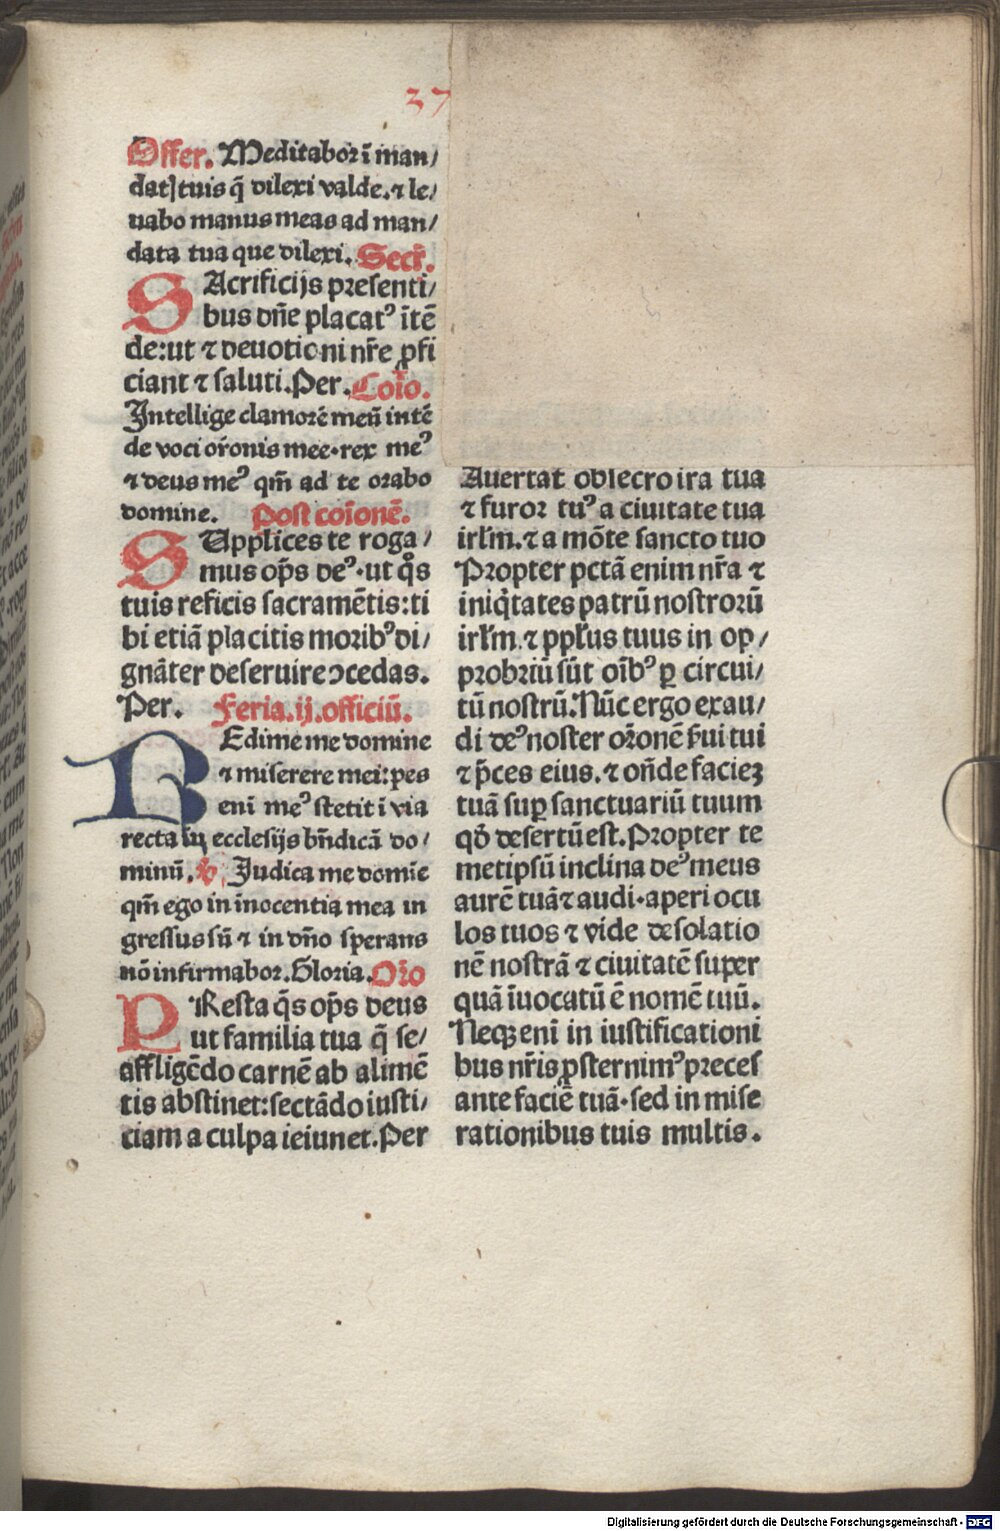 37
Offer. Meditabor ī man/
datꝭ tuis q̄ dilexi valde. ⁊ le/
uabo manus meas ad man/
data tua que dilexi. Secr̄.
SAcrificijs presenti/
bus dn̄e placatꝰ ītē
de: ut ⁊ deuotioni nr̄e ꝓfi
ciant ⁊ saluti. Per. Coīo.
Intellige clamorē meū intē
de voci or̄onis mee. rex meꝰ
⁊ deus meꝰ qm̄ ad te orabo
domine. Post coīonē.
SUpplices te roga/
mus op̄s deꝰ. ut q̄s
tuis reficis sacramētis: ti
bi etiā placitis moribꝰ di/
gnāter deseruire ↄcedas.
Per. Feria.ij.officiū.
REdime me domine
⁊ miserere mei: pes
eni̅ meꝰ stetit ī via
recta in ecclesijs bn̄dicā do/
minū. ℣. Judica me domīe
qm̄ ego in īnocentia mea in
gressus sū ⁊ in dn̄o sperans
nō infirmabor. Gloria. Or̄o
PResta q̄s op̄s deus
ut familia tua q̄ se/
affligēdo carnē ab alimē
tis abstinet: sectādo iusti/
ciam a culpa ieiunet. Per
Auertat obsecro ira tua
⁊ furor tuꝰ a ciuitate tua
irl̄m. ⁊ a mōte sancto tuo
Propter pctā enim nr̄a ⁊
iniq̇tates patrū nostrorū
irl̄m. ⁊ ppl̄us tuus in op/
probriū sūt oīb⁹ ꝑ circui/
tū nostrū. Nūc ergo exau/
di deꝰ noster or̄onē ẜui tui
⁊ p̄ces eius. ⁊ on̄de facieꝫ
tuā suꝑ sanctuariū tuum
qđ desertū est. Propter te
metipsū inclina deꝰ meus
aurē tuā ⁊ audi. aperi ocu
los tuos ⁊ vide desolatio
nē nostrā ⁊ ciuitatē super
quā īuocatū ē nomē tuū.
Neqꝫ eni̅ in iustificationi
bus nr̄is ꝓsternimꝰ preces
ante faciē tuā. sed in mise
rationibus tuis multis.
Digitalisierung gefördert durch die Deutsche Forschungsgemeinschaft - DFG